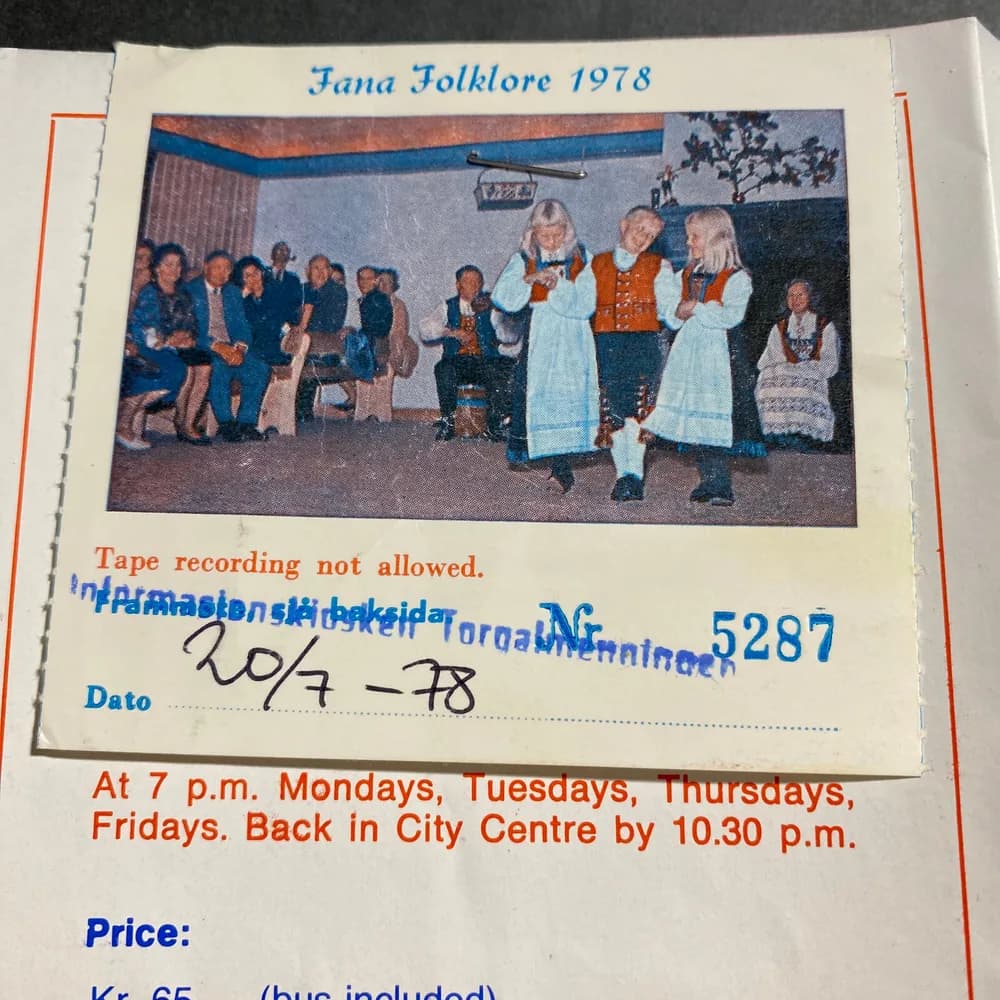 Fana Folklore 1978
Tape recording not allowed.
Frammøte, sjå baksida.
Informasjonskiosken Torgalmenningen
Nr. 5287
20/7 - 78
Dato
At 7 p.m. Mondays, Tuesdays, Thursdays,
Fridays. Back in City Centre by 10.30 p.m.
Price:
Kr. 65 (bus included)